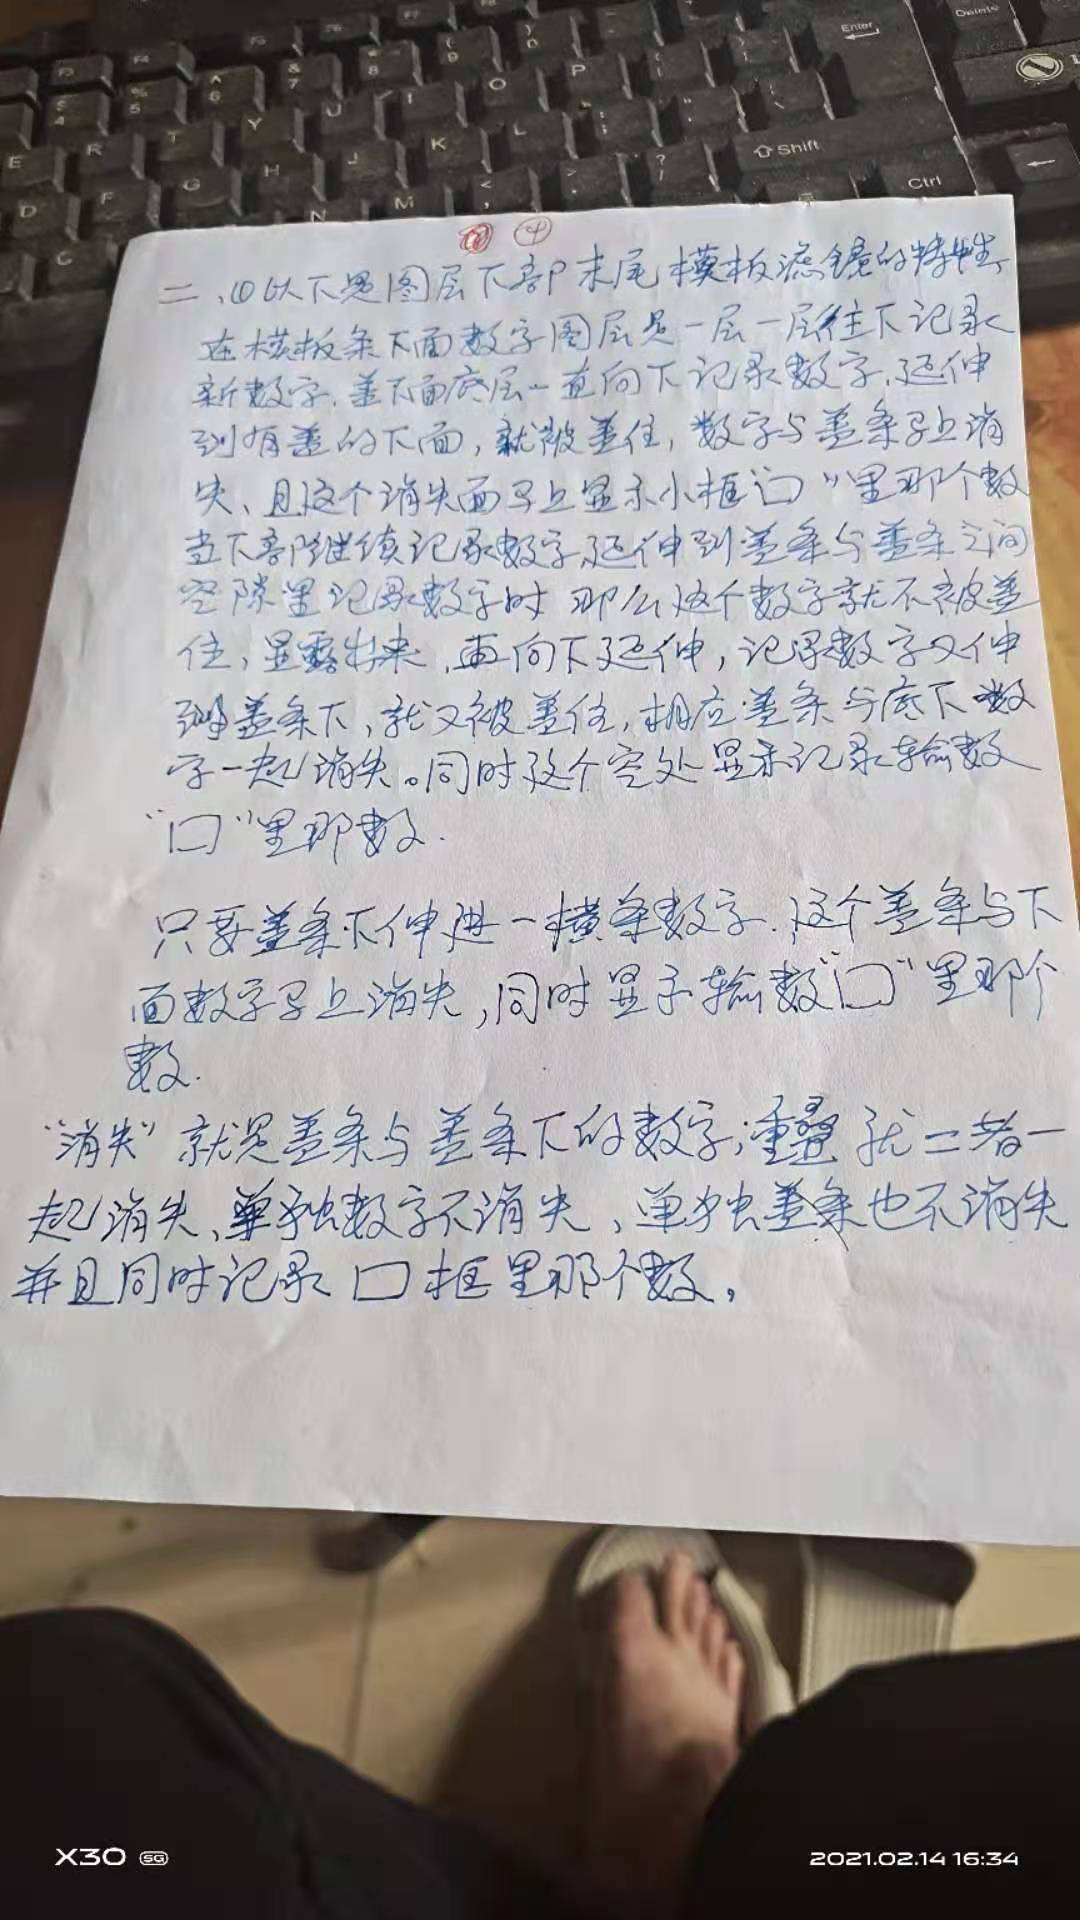 F3
F5
F7
Enter
Delete
4
% 5
^ 6
& 7
* 8
( 9
) 0
E
R
T
Y
U
I
O
P
D
F
G
H
J
K
L
Shift
C
N
M
Ctrl
④
二、(1)以下是图层下部末尾模板滤镜的特性、
在模板条下面数字图层是一层一层往下记录
新数字、盖下面底层一直向下记录数字,延伸
到有盖的下面,就被盖住,数字与盖条马上消
失、且这个消失面马上显示小框“口”里那个数
当下部继续记录数字,延伸到盖条与盖条之间
空隙里记录数字时 那么这个数字就不被盖
住,显露出来,再向下延伸,记录数字又伸
到盖条下,就又被盖住,相应盖条与底下数
字一起消失。同时这个空处显示记录输数
“口”里那数.
只要盖条下伸进一横条数字、这个盖条与下
面数字马上消失,同时显示输数“口”里那个
数.
“消失”就是盖条与盖条下的数字;重叠就二者一
起消失、单独数字不消失、单独盖条也不消失
并且同时记录口框里那个数,
X30 5G
2021.02.14 16:34